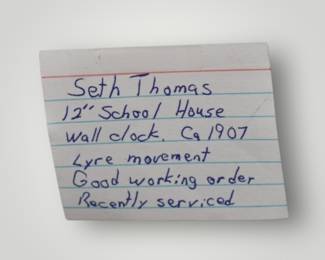 Seth Thomas
12" School House
wall clock. Ca 1907
Lyre movement
Good working order
Recently serviced